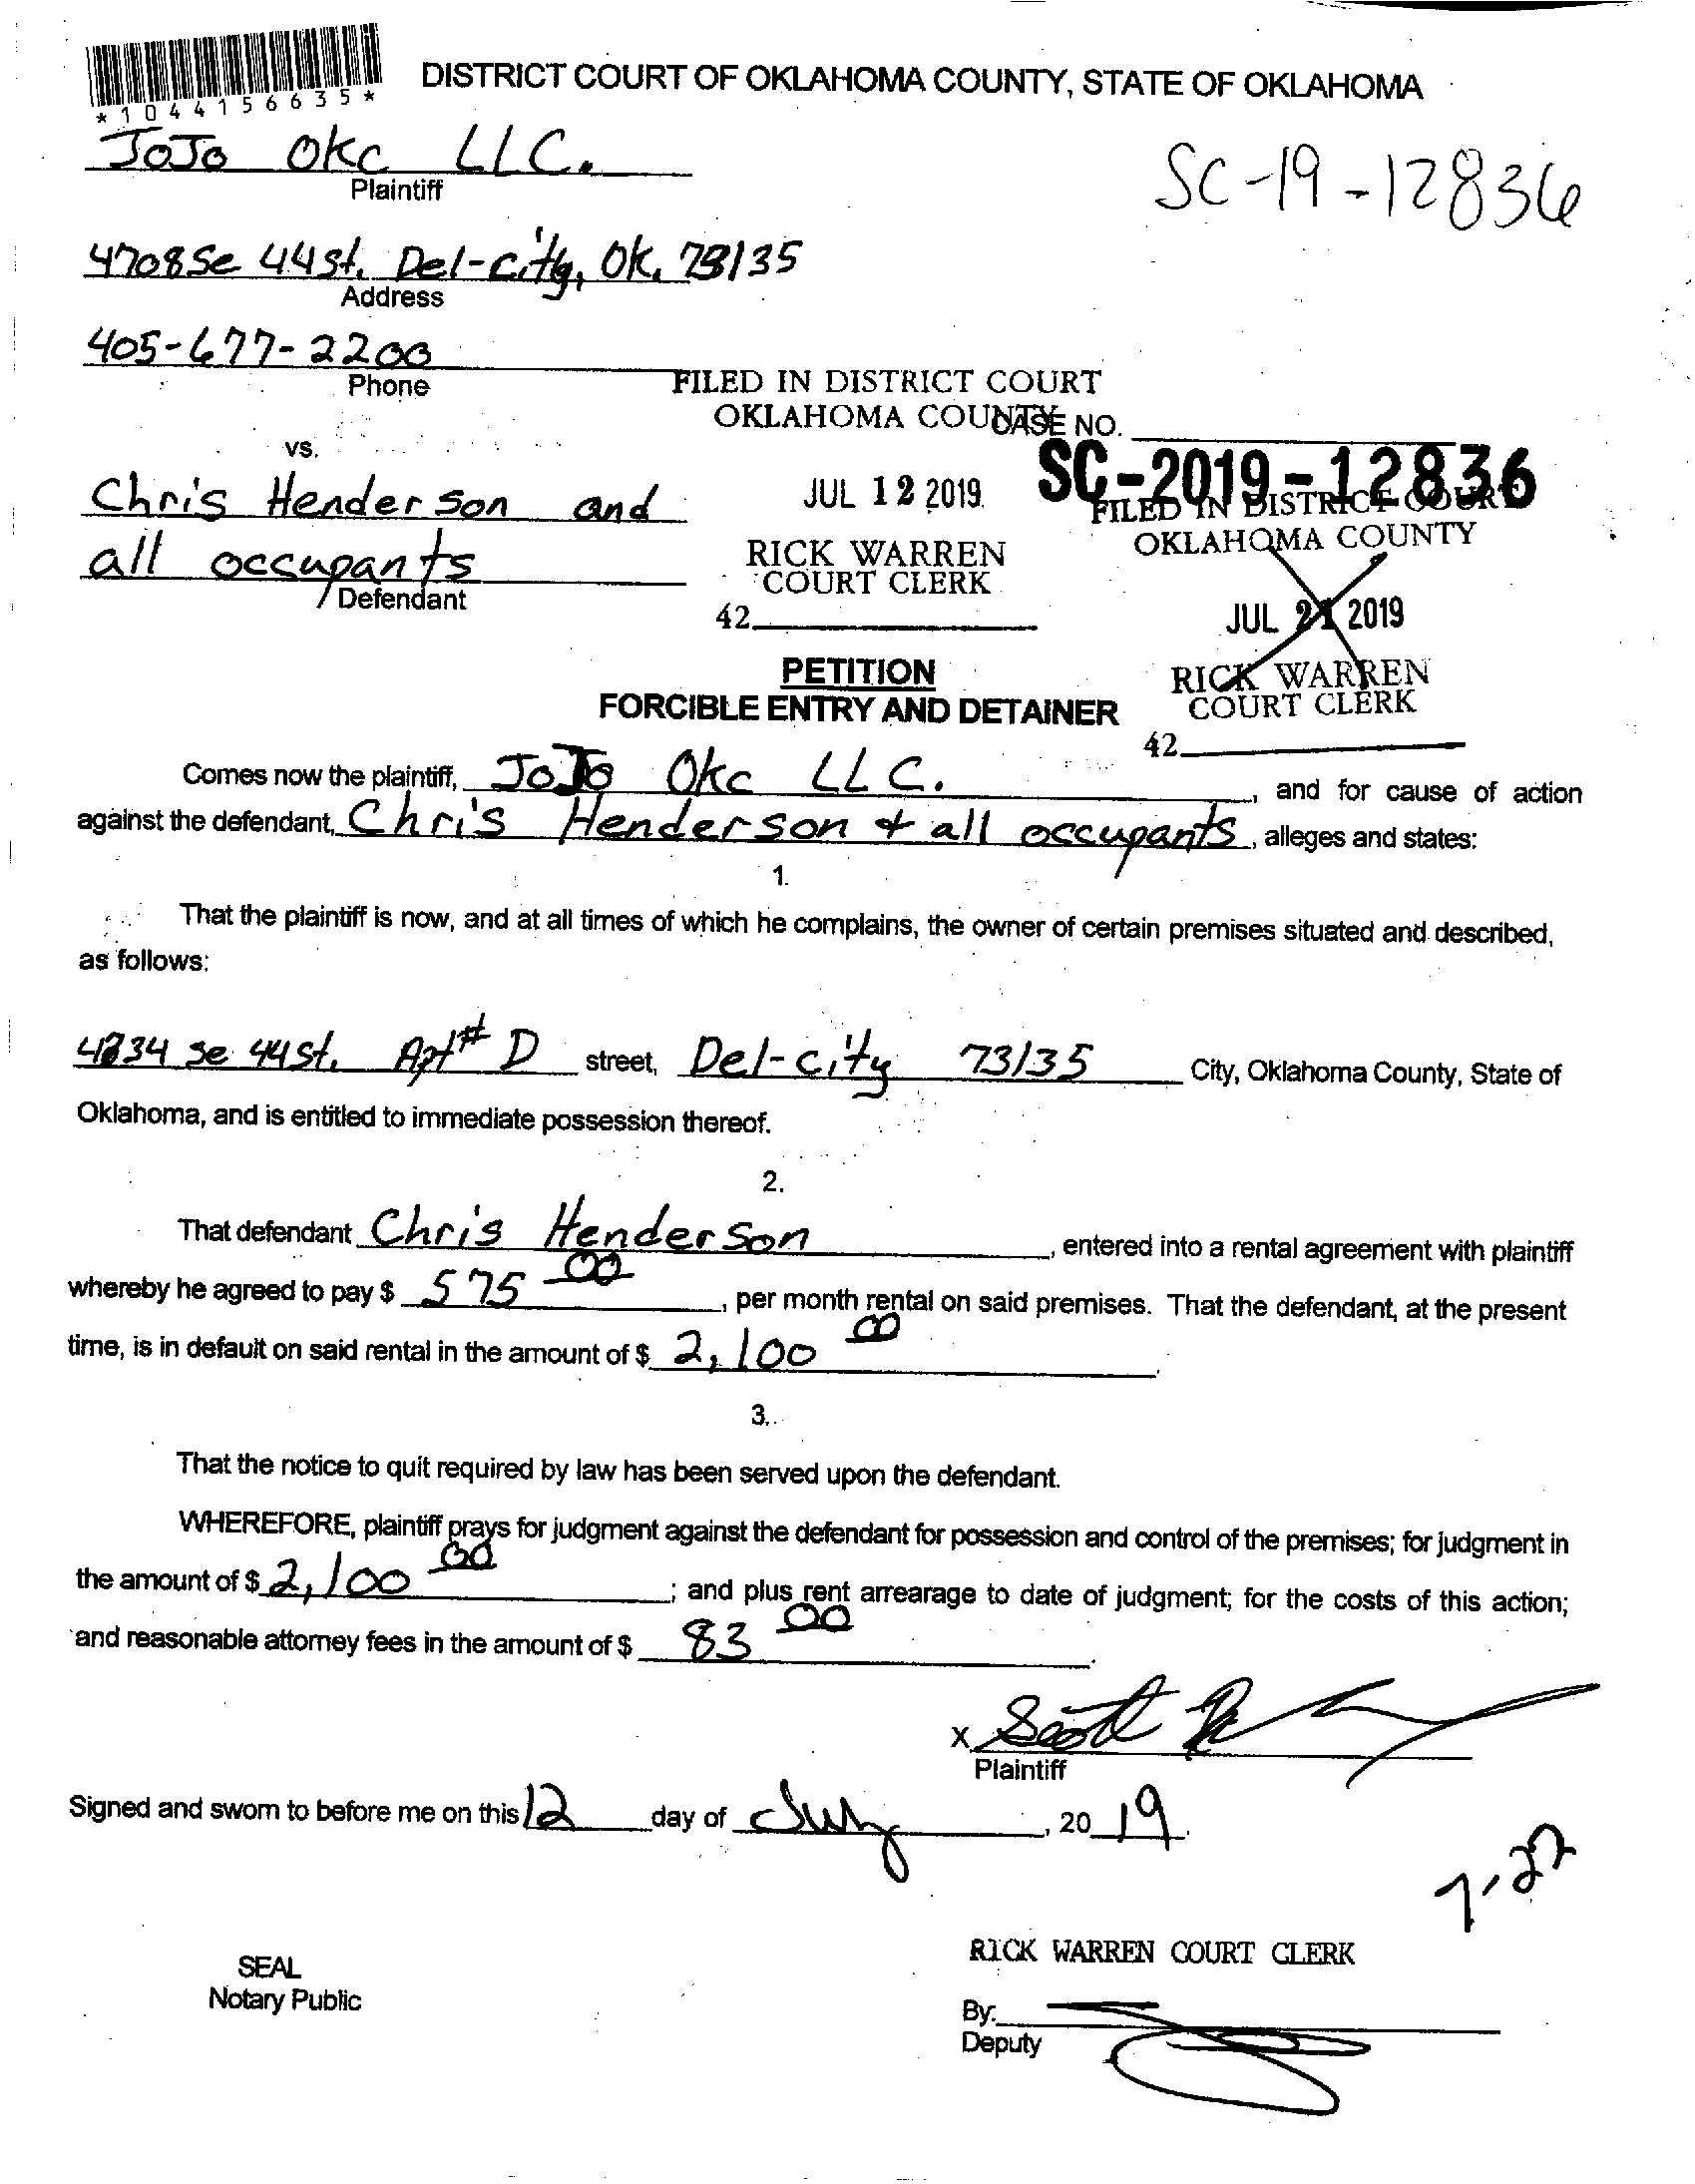 DISTRICT COURT OF OKLAHOMA COUNTY, STATE OF OKLAHOMA
*1044156635*
JoJo Okc LLC.
Plaintiff
SC-19-12836
4708 Se 44 St. Del-City, OK. 73135
Address
405-677-2200
Phone
FILED IN DISTRICT COURT
OKLAHOMA COUNTY
CASE NO.
vs.
SC-2019-12836
Chris Henderson and
JUL 12 2019
FILED IN DISTRICT COURT
OKLAHOMA COUNTY
all occupants
Defendant
RICK WARREN
COURT CLERK
42
JUL 21 2019
RICK WARREN
COURT CLERK
42
PETITION
FORCIBLE ENTRY AND DETAINER
Comes now the plaintiff, JoJo Okc LLC. , and for cause of action
against the defendant, Chris Henderson + all occupants , alleges and states:
1.
That the plaintiff is now, and at all times of which he complains, the owner of certain premises situated and described,
as follows:
se 44 St. Apt# D street, Del-city 73135 City, Oklahoma County, State of
Oklahoma, and is entitled to immediate possession thereof.
2.
That defendant Chris Henderson , entered into a rental agreement with plaintiff
whereby he agreed to pay $ 575 00 , per month rental on said premises. That the defendant, at the present
time, is in default on said rental in the amount of $ 2,100 00 .
3.
That the notice to quit required by law has been served upon the defendant.
WHEREFORE, plaintiff prays for judgment against the defendant for possession and control of the premises; for judgment in
the amount of $ 2,100 00 ; and plus rent arrearage to date of judgment; for the costs of this action;
and reasonable attorney fees in the amount of $ 83 00 .
x Scott
Plaintiff
Signed and sworn to before me on this 12 day of July , 20 19 .
7-22
SEAL
Notary Public
RICK WARREN COURT CLERK
By:
Deputy